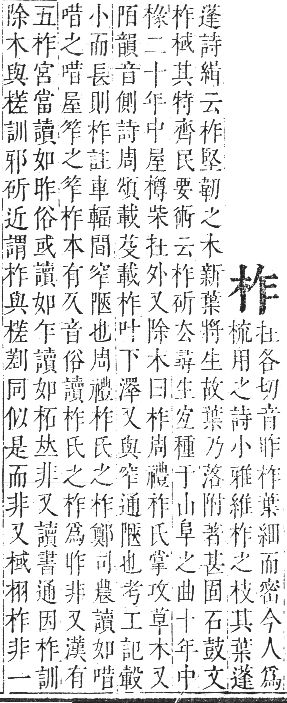 柞
在各切音昨柞葉細而密今人為
梳用之詩小雅維柞之枝其葉蓬
蓬詩緝云柞堅韌之木新葉將生故葉乃落附著甚固石鼓文
柞棫其特齊民要術云柞斫去尋生宜種于山阜之曲十年中
椽二十年中屋樽柴在外又除木曰柞周禮柞氏掌攻草木又
陌韻音側詩周頌載芟載柞叶下澤又與窄通陿也考工記轂
小而長則柞註車輻間窄陿也周禮柞氏之柞鄭司農讀如唶
唶之唶屋笮之笮柞本有音俗讀柞氏之柞為昨非又漢有
五柞宮當讀如昨俗或讀如乍讀如柘𠀤非又讀書通因柞訓
除木與槎訓邪斫近謂柞與槎剗同似是而非又棫栩柞非一